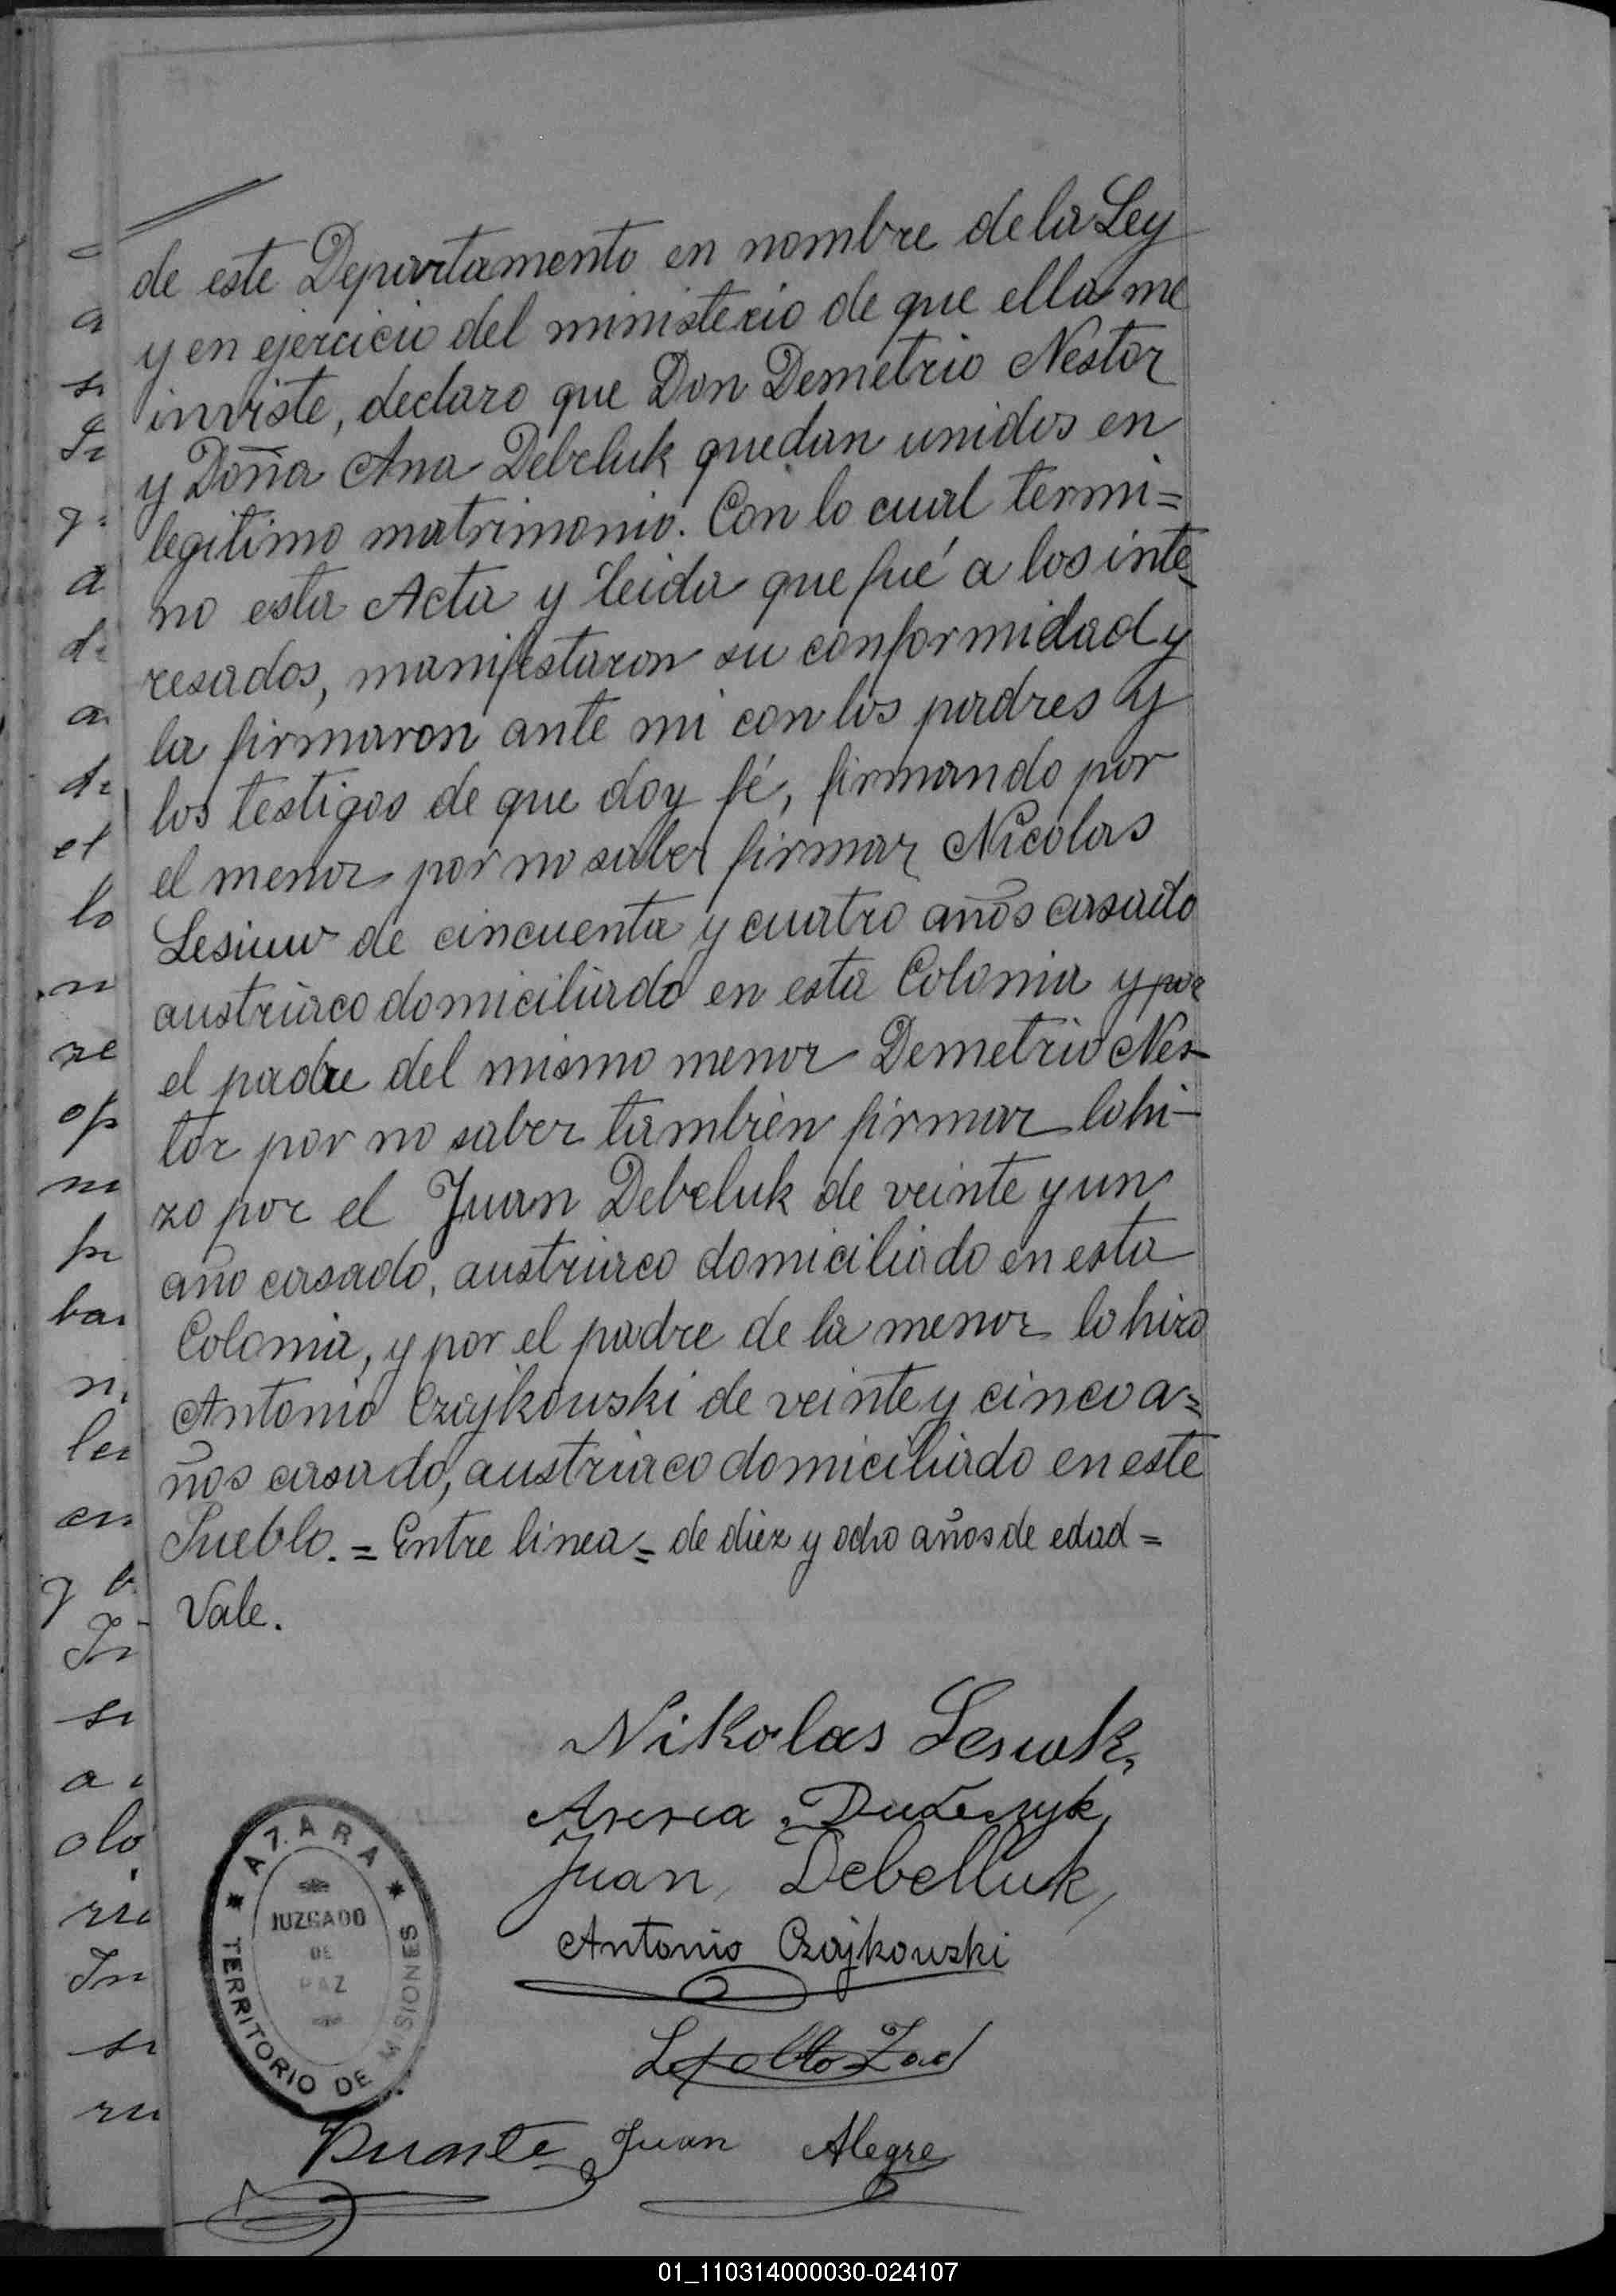 de este Departamento en nombre de la Ley
y en ejercicio del ministerio de que ella me
inviste, declaro que Don Demetrio Nestor
y Doña Ana Debeluk quedan unidos en
legitimo matrimonio. Con lo cual termi=
no esta Acta y leida que fué a los inte=
resados, manifestaron su conformidad y
la firmaron ante mi con los padres y
los testigos de que doy fé, firmando por
el menor por no saber firmar Nicolas
Lesiuw de cincuenta y cuatro años casado
austriaco domiciliado en esta Colonia y por
el padre del mismo menor Demetrio Nes-
tor por no saber también firmar lo hi-
zo por el Juan Debeluk de veinte y un
año casado, austriaco domiciliado en esta
Colonia, y por el padre de la menor lo hizo
Antonio Czajkowski de veinte y cinco a=
ños casado, austriaco domiciliado en este
Pueblo. = Entre linea = de diez y ocho años de edad =
Vale.
Nikolas Lesiuk
Juan Debelluk
Antonio Czajkowski
Duarte Juan Alegre
AZARA
JUZGADO
DE
PAZ
TERRITORIO DE MISIONES
01_110314000030-024107